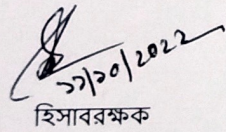 ১১/১০/২০২২
হিসাবরক্ষক